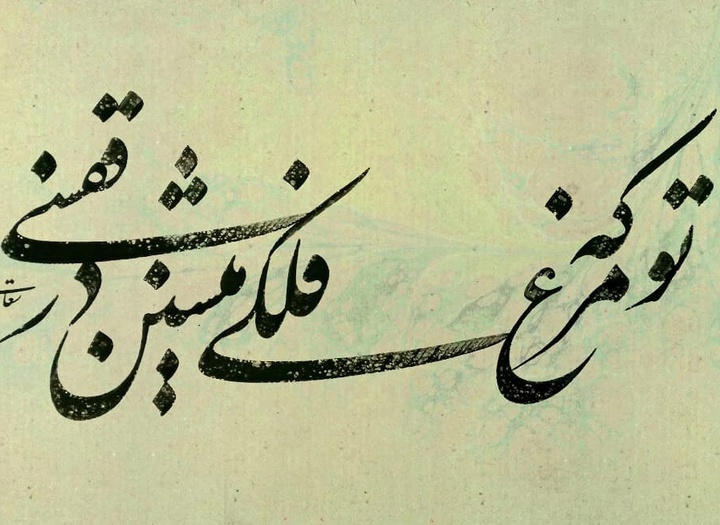 تو که مرغ فلکی منشین در قفسی